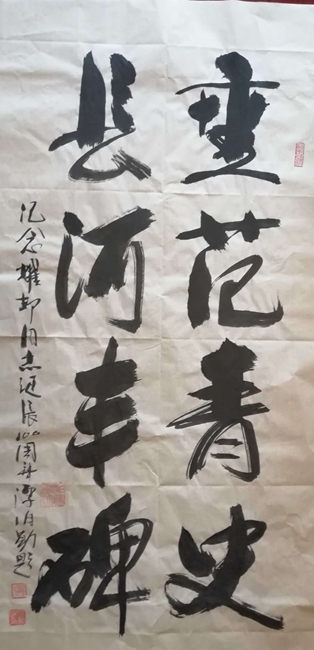 垂范青史
长河丰碑
纪念耀邦同志诞辰100周年